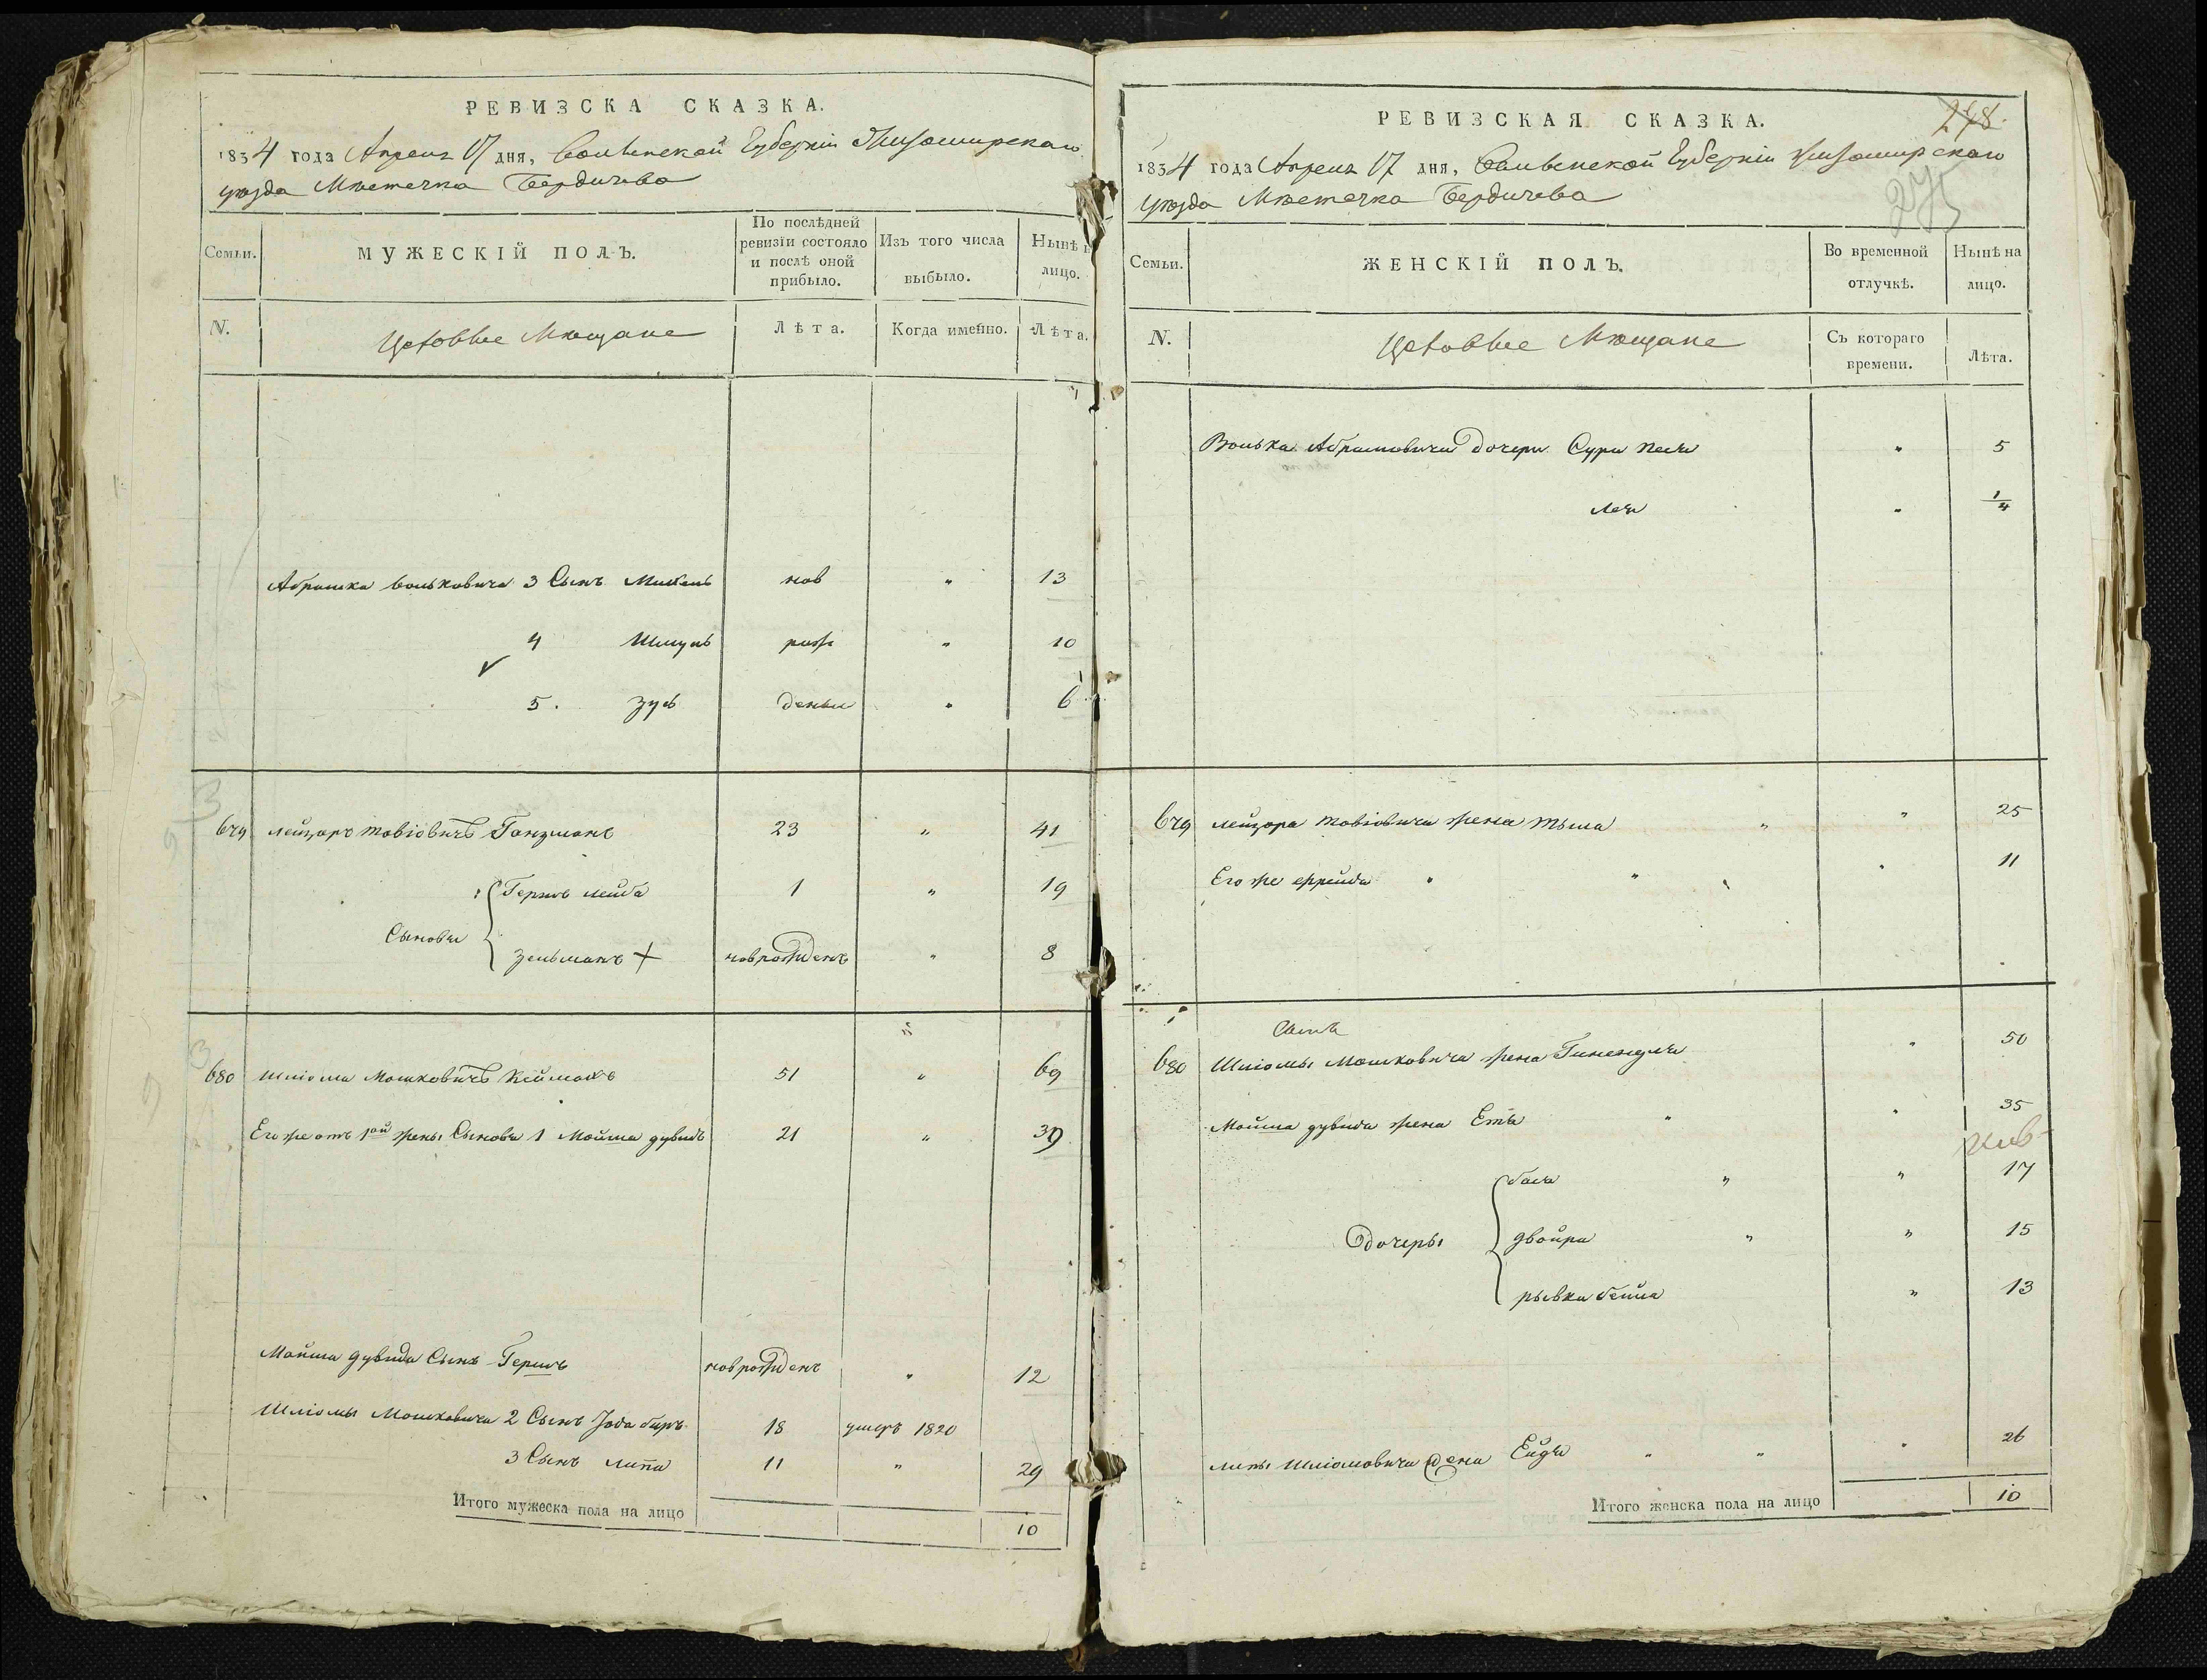 РЕВИЗСКА СКАЗКА.
1834 года Апреля 17 дня, Волынской Губерніи Житомирскаго
уѣзда Мѣстечка Бердичева
Семьи.
МУЖЕСКІЙ ПОЛЪ.
По послѣдней ревизіи состояло и послѣ оной прибыло.
Изъ того числа выбыло.
Нынѣ н лицо.
N.
Цеховые Мѣщане
Лѣта.
Когда именно.
Лѣта.
Абрамка Вольковича 3 Сынъ Михель нов " 13
4 Шмуль рож " 10
5. Зусь дены " 6
679 Лейзоръ Товіовичъ Ганзманъ 23 " 41
Сыновья
Гершь Лейба 1 " 19
Зельманъ + новрожденъ " 8
680 Шліома Мошковичъ Кейманъ 51 " 69
Его же отъ 1ой жены Сыновья 1 Мойша Дувидъ 21 " 39
Мойша Дувида Сынъ Гершь новрожденъ " 12
Шліомы Мошковича 2 Сынъ 18 умеръ 1820
3 Сынъ Липа 11 " 29
Итого мужеска пола на лицо
10
РЕВИЗСКАЯ СКАЗКА.
248.
275
1834 года Апреля 17 дня, Волынской Губерніи Житомирскаго
уѣзда Мѣстечка Бердичева
Семьи.
ЖЕНСКІЙ ПОЛЪ.
Во временной отлучкѣ.
Нынѣ на лицо.
N.
Цеховые Мѣщане
Съ котораго времени.
Лѣта.
Волька Абрамовича дочери Сура Песя " 5
Лея " 1/4
679 Лейзора Товіовича жена Тыма " " 25
Его же " " " 11
680 Шліомы Мошковича жена " 50
Мойша Дувида жена Етя " " 35
Дочеры
бася " " 17
Двойра " " 15
рывка бейла " 13
Липы Шліомовича жена Ейдя " " " 26
Итого женска пола на лицо
10